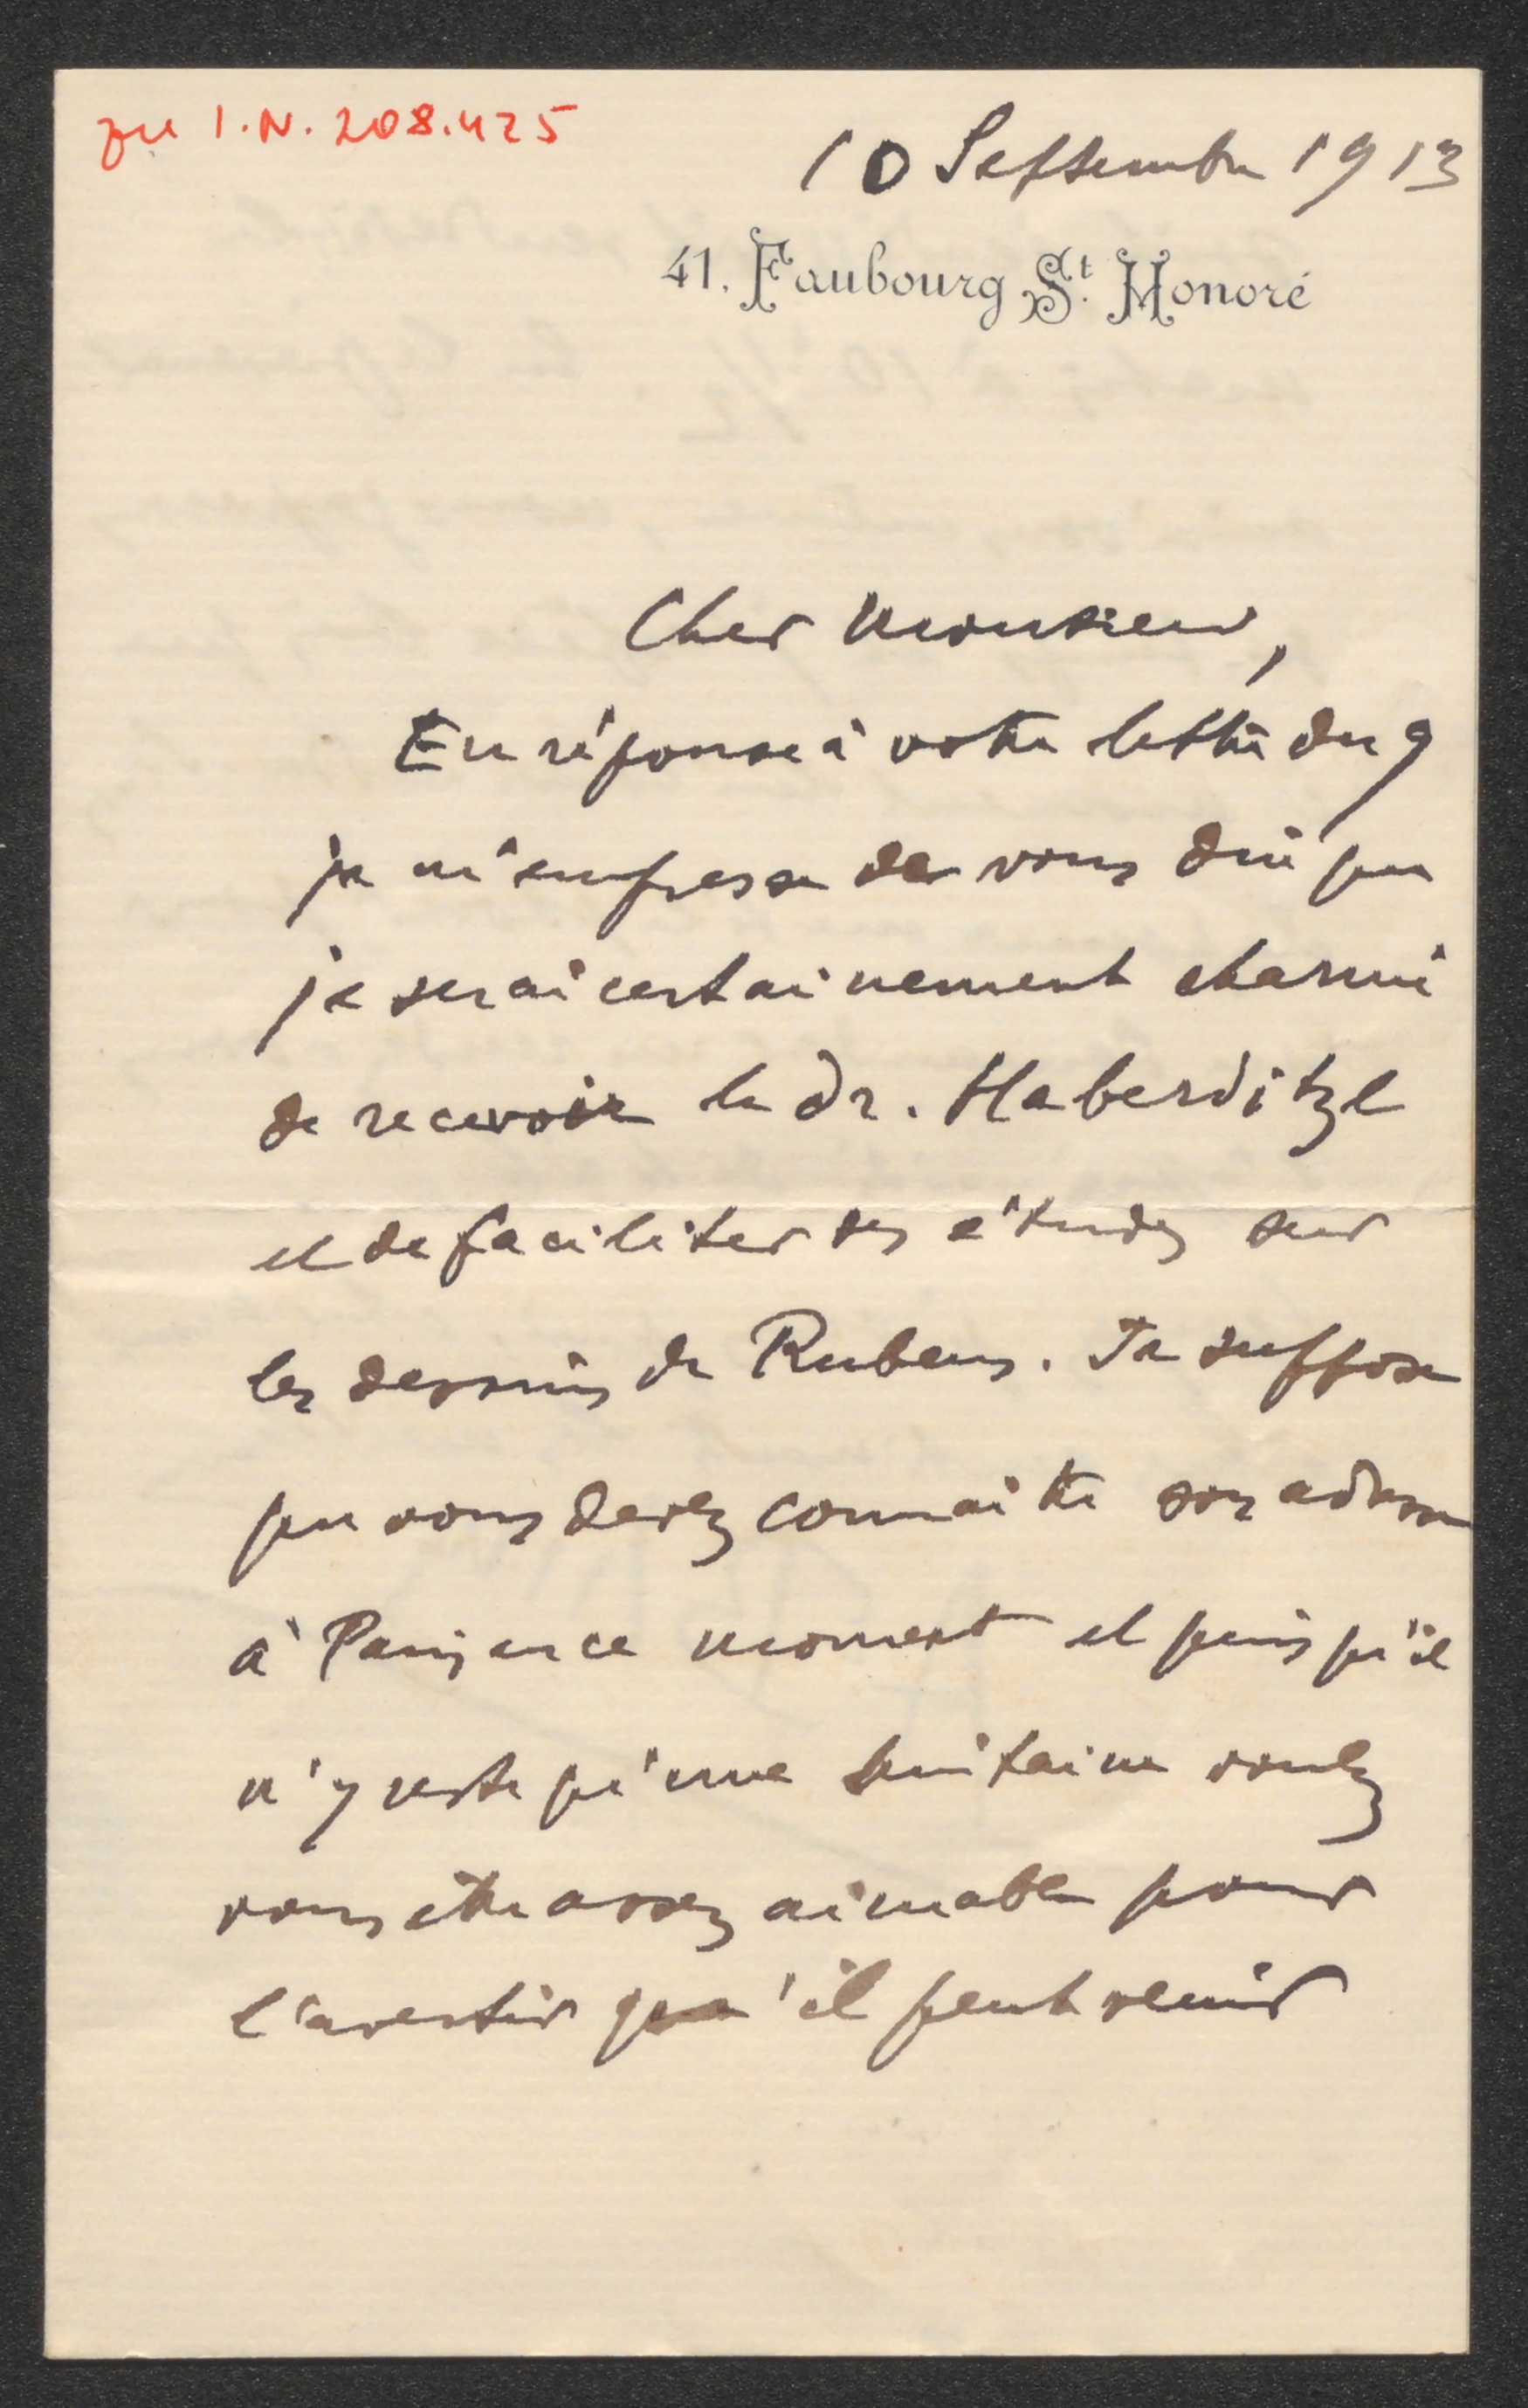 zu I.N. 208.425
10 Septembre 1913
41. Faubourg St. Honoré
Cher Monsieur,
En réponse à votre lettre du 9
je m'empresse de vous dire que
je serai certainement charmé
de recevoir le dr. Haberditzl
et de faciliter ses études sur
les dessins de Rubens. Je suppose
que vous devez connaitre son adresse
à Paris en ce moment et puisqu'il
n'y reste qu'une huitaine voulez
vous être assez aimable pour
l'avertir qu'il peut venir